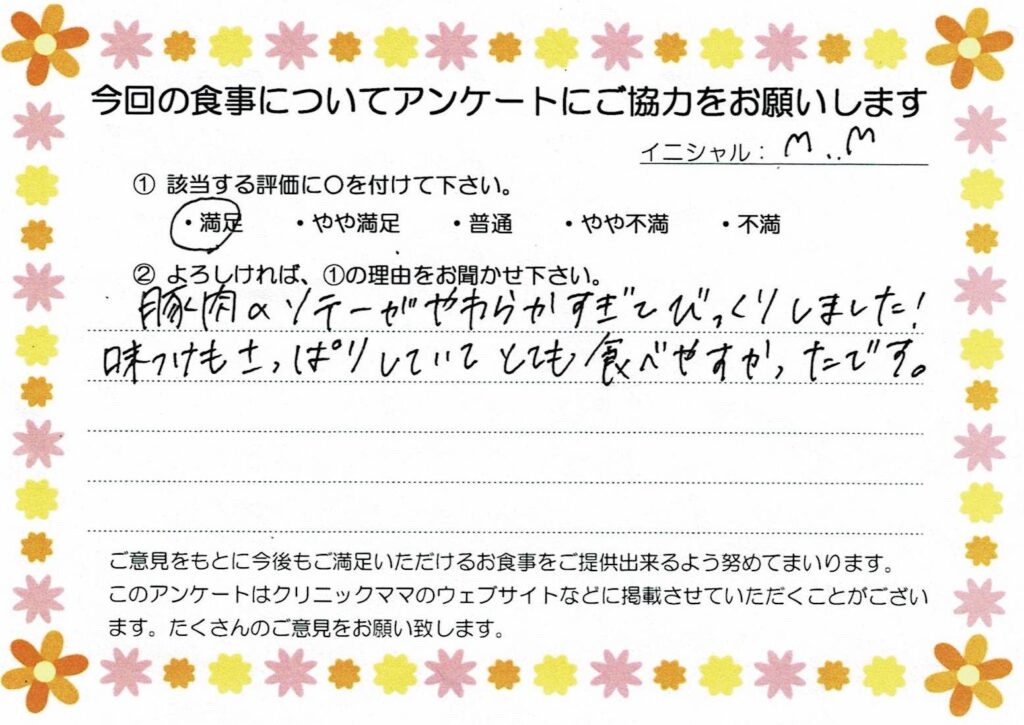 今回の食事についてアンケートにご協力をお願いします
イニシャル： M..M
① 該当する評価に〇を付けて下さい。
・満足 ・やや満足 ・普通 ・やや不満 ・不満
② よろしければ、①の理由をお聞かせ下さい。
豚肉のソテーがやわらかすぎてびっくりしました！
味つけもさっぱりしていてとても食べやすかったです。
ご意見をもとに今後もご満足いただけるお食事をご提供出来るよう努めてまいります。
このアンケートはクリニックママのウェブサイトなどに掲載させていただくことがござい
ます。たくさんのご意見をお願い致します。